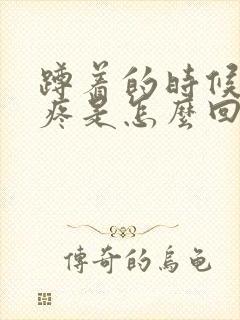 蹲着的时候
疼是怎麼回
傳奇的烏龜